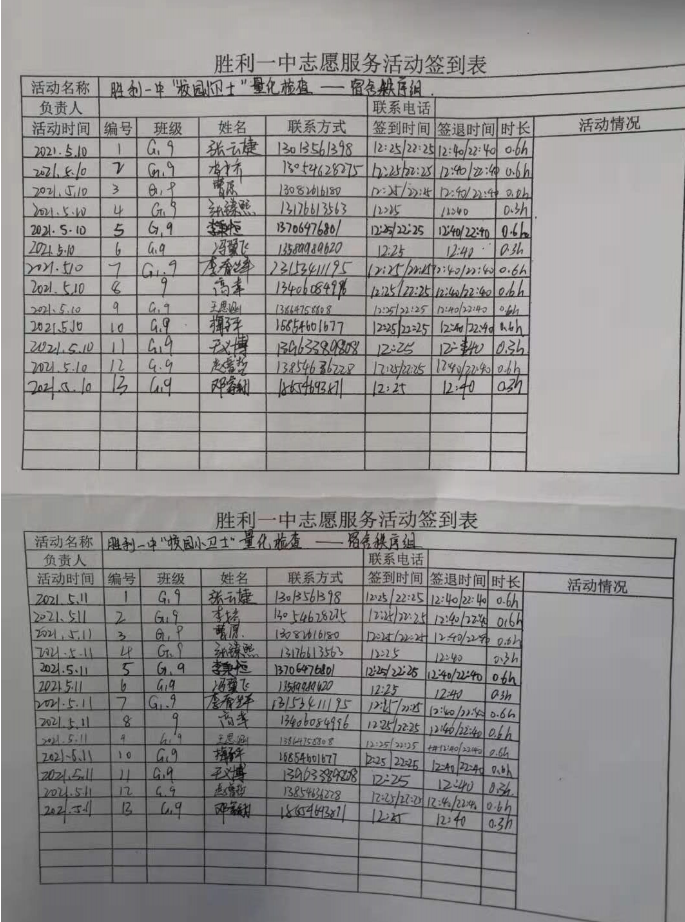 胜利一中志愿服务活动签到表
活动名称 胜利一中"校园小卫士"量化检查 —— 宿舍秩序组.
负责人 联系电话
活动时间 编号 班级 姓名 联系方式 签到时间 签退时间 时长 活动情况
2021.5.10 1 G1.9 张云捷 13013561398 12:25/22:25 12:40/22:40 0.6h
2021.5.10 2 G1.9 13054628275 12:25/22:25 12:40/22:40 0.6h
2021.5.10 3 G1.9 曹原 13082616180 12:25/22:25 12:40/22:40 0.6h
2021.5.10 4 G1.9 13176613563 12:25 12:40 0.3h
2021.5.10 5 G1.9 13706476801 12:25/22:25 12:40/22:40 0.6h
2021.5.10 6 G1.9 冯翼飞 12:25 12:40 0.3h
2021.5.10 7 G1.9 12:25/22:25 12:40/22:40 0.6h
2021.5.10 8 9 12:25/22:25 12:40/22:40 0.6h
2021.5.10 9 G1.9 王思涵 13864756808 12:25/22:25 12:40/22:40 0.6h
2021.5.10 10 G1.9 15854601677 12:25/22:25 12:40/22:40 0.6h
2021.5.10 11 G1.9 12:25 12:40 0.3h
2021.5.10 12 G.9 12:25/22:25 12:40/22:40 0.6h
2021.5.10 13 G.9 12:25 12:40 0.3h
胜利一中志愿服务活动签到表
活动名称 胜利一中"校园小卫士"量化检查 —— 宿舍秩序组
负责人 联系电话
活动时间 编号 班级 姓名 联系方式 签到时间 签退时间 时长 活动情况
2021.5.11 1 G1.9 张云捷 13013561398 12:25/22:25 12:40/22:40 0.6h
2021.5.11 2 G1.9 13054628275 12:25/22:25 12:40/22:40 0.6h
2021.5.11 3 G1.9 曹原 13082616180 12:25/22:25 12:40/22:40 0.6h
2021.5.11 4 G1.9 13176613563 12:25 12:40 0.3h
2021.5.11 5 G1.9 13706476801 12:25/22:25 12:40/22:40 0.6h
2021.5.11 6 G1.9 冯翼飞 12:25 12:40 0.3h
2021.5.11 7 G1.9 12:25/22:25 12:40/22:40 0.6h
2021.5.11 8 9 13406084996 12:25/22:25 12:40/22:40 0.6h
2021.5.11 9 G1.9 王思涵 13864756808 12:25/22:25 12:40/22:40 0.6h
2021.5.11 10 G1.9 15854601677 12:25/22:25 12:40/22:40 0.6h
2021.5.11 11 G1.9 12:25 12:40 0.3h
2021.5.11 12 G.9 12:25/22:25 12:40/22:40 0.6h
2021.5.11 13 G.9 12:25 12:40 0.3h